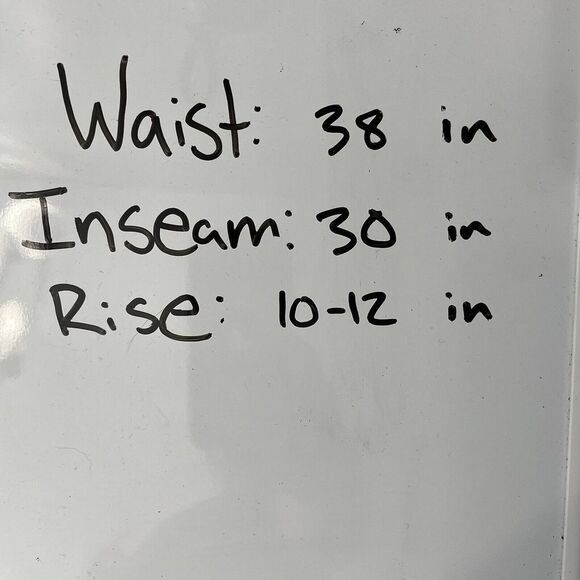 Waist: 38 in
Inseam: 30 in
Rise: 10-12 in